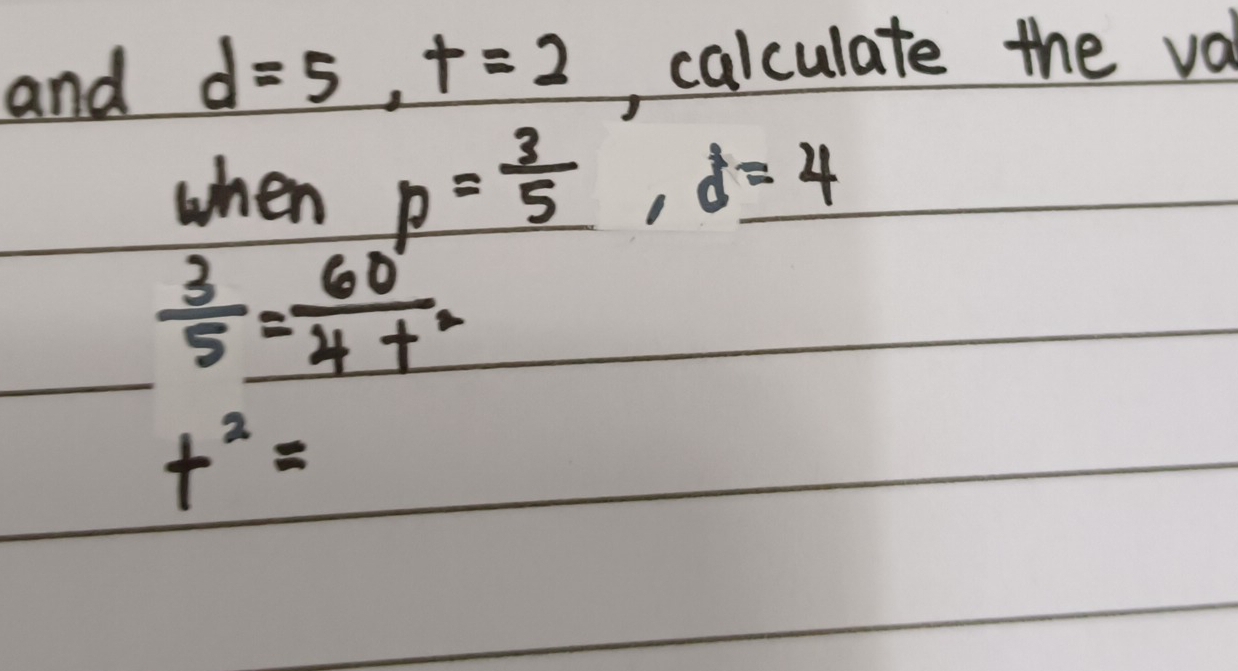 and d = 5 , t = 2 , calculate the
when p = 3/5 , d = 4
3/5 = 60/4 t²
t² =